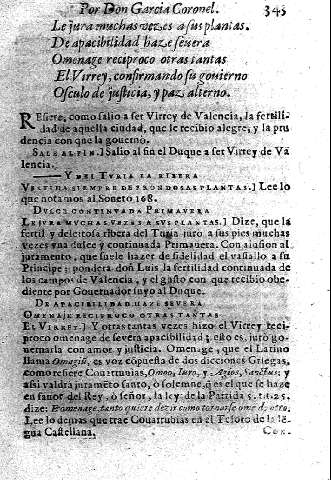 Por Don Garcia Coronel. 345
Le jura muchas vezes a sus plantas.
De apacibilidad haze severa
Omenage reciproco otras tantas
El Virrey, confirmando su govierno
Osculo de justicia, y paz alterno.
REfiere, como salio a ser Virrey de Valencia, la fertili-
dad de aquella ciudad, que le recibio alegre, y la pru
dencia con que la governo.
SALE AL FIN.] Salio al fin el Duque a ser Virrey de Va
lencia.
— Y DEL TURIA LA RIBERA
VESTIDA SIEMPRE DE FRONDOSAS PLANTAS.] Lee lo
que notamos al Soneto 168.
DULCE CONTINUADA PRIMAVERA
LE JURA MUCHAS VEZES A SUS PLANTAS.] Dize, que la
fertil y deleitosa ribera del Turia juro a sus pies muchas
vezes vna dulce y continuada Primavera. Con alusion al
juramento, que suele hazer de fidelidad el vassallo a su
Principe; pondera don Luis la fertilidad continuada de
los campos de Valencia, y el gusto con que recibio obe-
diente por Governador suyo al Duque.
DE APACIBILIDAD HAZE SEVERA
OMENAGE RECIPROCO OTRAS TANTAS
EL VIRREY.] Y otras tantas vezes hizo el Virrey reci-
proco omenage de severa apacibilidad; esto es, juro go-
vernarla con amor y justicia. Omenage, que el Latino
llama Omagio, es voz cōpuesta de dos dicciones Griegas,
como refiere Covarruvias, Omoo, Iuro, y Agios, Sanctus; y
assi valdra juramēto santo, ò solemne, q̄ es el que se haze
en favor del Rey, ò señor, la ley de la Partida 5. tit. 25.
dize: Eomenage, tanto quiere dezir como tornarse ome de otro.
Lee lo demas que trae Covarruvias en el Tesoro de la lē
gua Castellana.